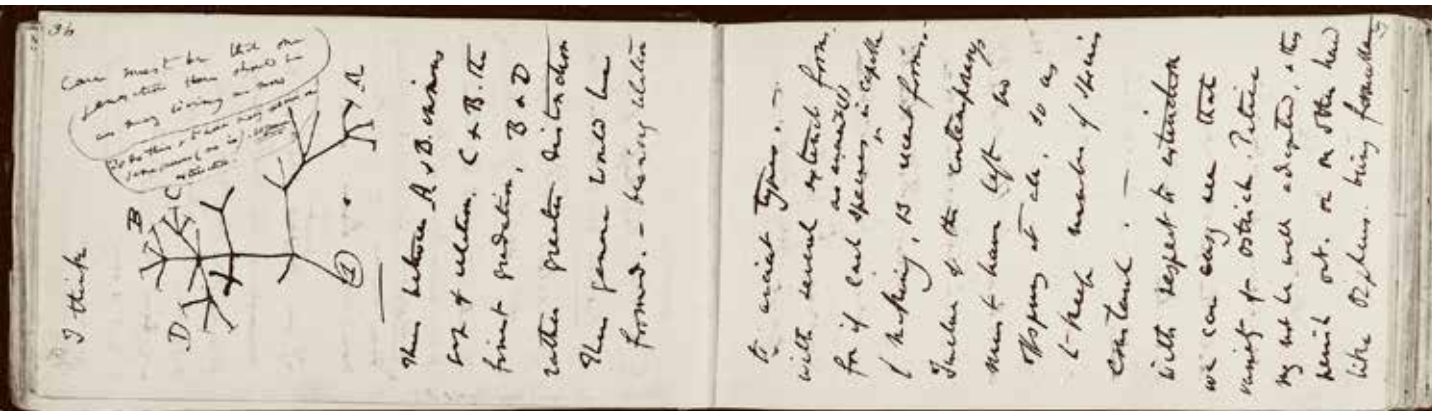 36
I think
Case must be that one
generation then should be
as many living as now
To do this & to have many species in
same genus (as is) requires
extinction.
A
B
C
D
(1)
Thus between A & B. immense
gap of relation. C & B. the
finest gradation, B & D
rather greater distinction
Thus genera would be
formed. — bearing relation
37
to ancient types. —
with several extinct forms,
for if each species an ancient
is capable
of making, 13 recent forms. —
Twelve of the contemporarys
must have left no
offspring at all, so as
to keep number of species
constant. —
With respect to extinction
we can easy see that
variety of ostrich. Petise
may not be well adapted, & thus
perish out. or on other hand
like Orpheus. being favourable